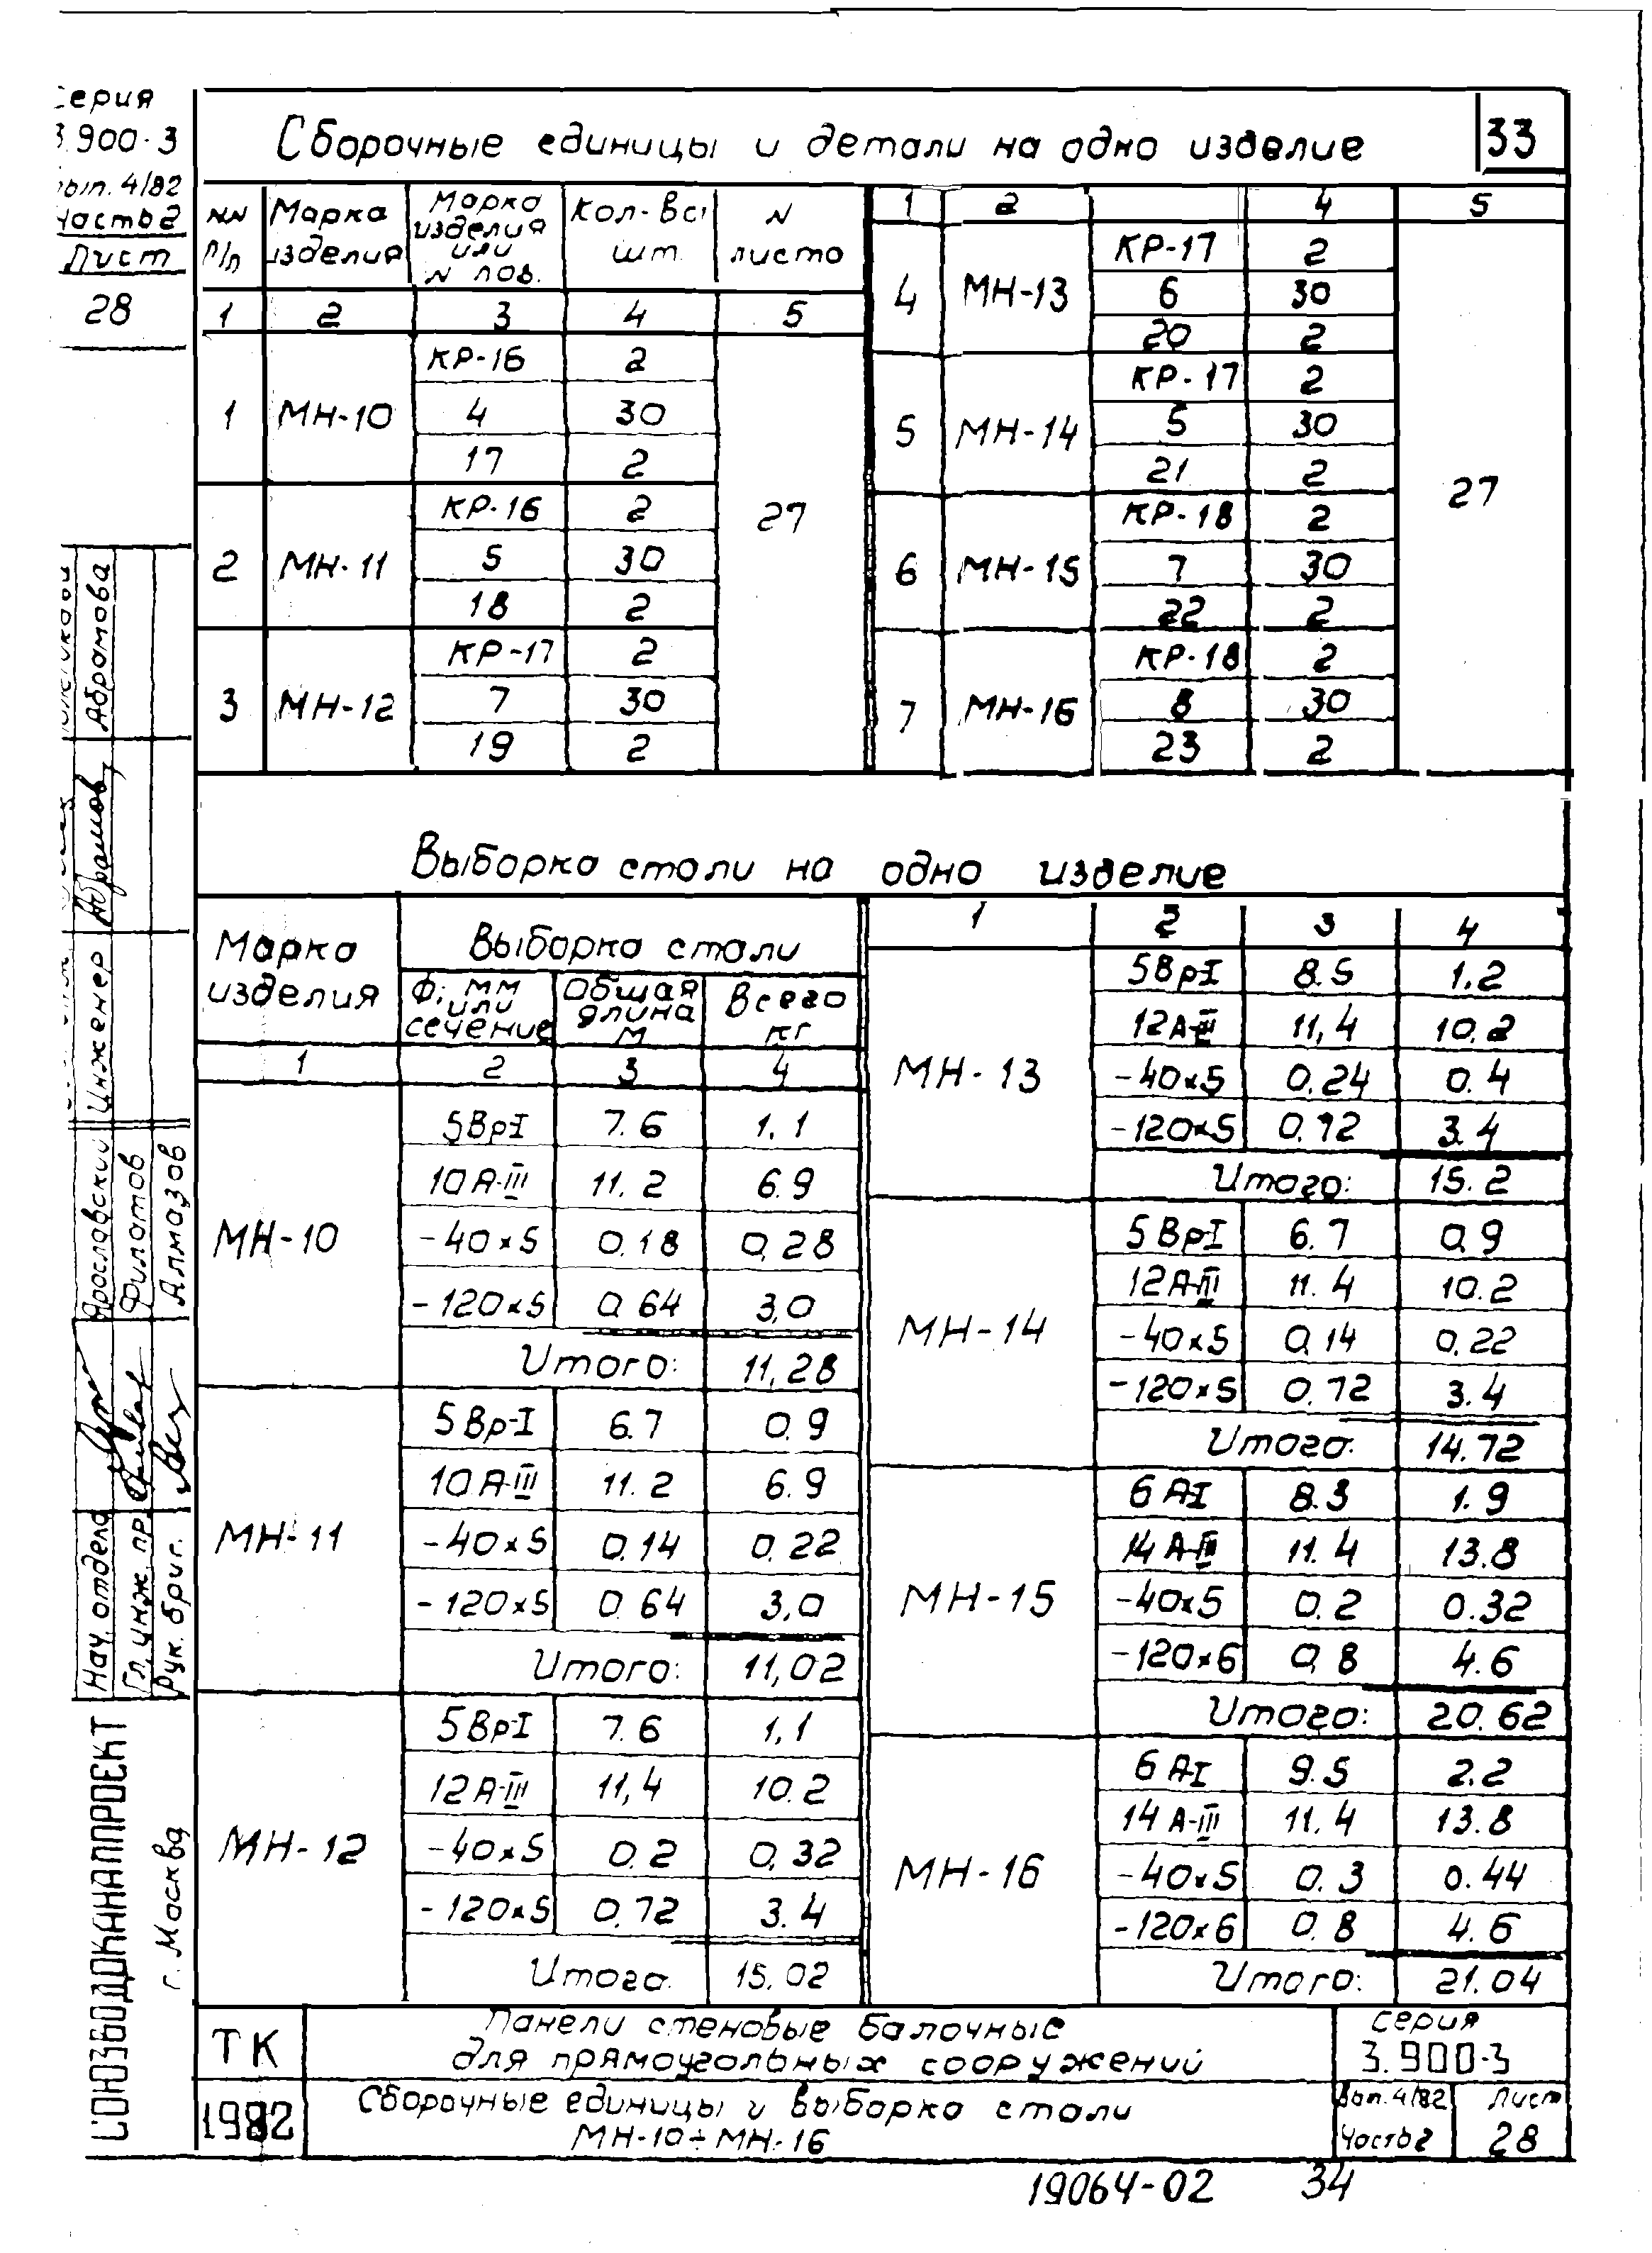 Серия
3.900-3
Вып. 4/82
Часть 2
Лист
28
Сборочные единицы и детали на одно изделие
33
NN п/п | Марка изделия | Марка изделия или N поз. | Кол-во шт. | N листа
1 | 2 | 3 | 4 | 5
1 | МН-10 | КР-16 | 2 | 27
4 | 30
17 | 2
2 | МН-11 | КР-16 | 2
5 | 30
18 | 2
3 | МН-12 | КР-17 | 2
7 | 30
19 | 2
1 | 2 | 4 | 5
4 | МН-13 | КР-17 | 2 | 27
6 | 30
20 | 2
5 | МН-14 | КР-17 | 2
5 | 30
21 | 2
6 | МН-15 | КР-18 | 2
7 | 30
22 | 2
7 | МН-16 | КР-18 | 2
8 | 30
23 | 2
Выборка стали на одно изделие
Марка изделия | Выборка стали
Ф, мм или сечение | Общая длина м | Всего кг
1 | 2 | 3 | 4
МН-10 | 5Вр-I | 7.6 | 1.1
10А-III | 11.2 | 6.9
-40×5 | 0.18 | 0,28
-120×5 | 0.64 | 3,0
Итого: 11,28
МН-11 | 5Вр-I | 6.7 | 0.9
10А-III | 11.2 | 6.9
-40×5 | 0.14 | 0.22
-120×5 | 0.64 | 3,0
Итого: 11,02
МН-12 | 5Вр-I | 7.6 | 1,1
12А-III | 11,4 | 10.2
-40×5 | 0.2 | 0,32
-120×5 | 0.72 | 3.4
Итого. 15.02
1 | 2 | 3 | 4
МН-13 | 5Вр-I | 8.5 | 1.2
12А-III | 11,4 | 10.2
-40×5 | 0.24 | 0.4
-120×5 | 0.72 | 3.4
Итого: 15.2
МН-14 | 5Вр-I | 6.7 | 0.9
12А-III | 11.4 | 10.2
-40×5 | 0.14 | 0,22
-120×5 | 0.72 | 3.4
Итого. 14.72
МН-15 | 6АI | 8.3 | 1.9
14А-III | 11.4 | 13.8
-40×5 | 0.2 | 0.32
-120×6 | 0,8 | 4.6
Итого: 20.62
МН-16 | 6АI | 9.5 | 2.2
14А-III | 11.4 | 13.8
-40×5 | 0.3 | 0.44
-120×6 | 0.8 | 4.6
Итого: 21.04
ТК
1982
Панели стеновые балочные
для прямоугольных сооружений
Сборочные единицы и выборка стали
МН-10÷МН-16
Серия
3.900-3
Вып. 4/82
Часть 2
Лист
28
19064-02
34
Абрамова
Инженер
Нач. отдела Ярославский
Гл. инж. пр. Филатов
Рук. бриг. Алмазов
СОЮЗВОДОКАНАЛПРОЕКТ
г. Москва